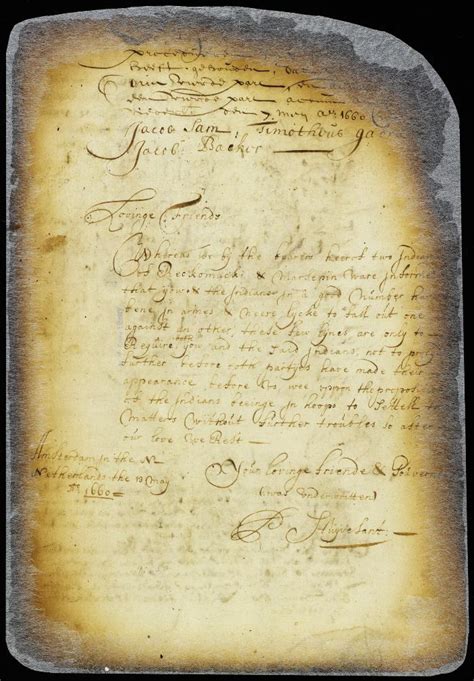 procedijeren
heeft gehouden, van
Drie vierde part, en
een vierde part
7 Mey Aº 1660
Jacob Sam, Timotheus Ga
Jacob Backer
Lovinge Friends
Whereas wee by the bearers heereof two Indians
of Reckomacki & Mardepin ware informed
that yow & the Indians in a good number have
bene in armes & were lycke to fall out one
against an other, these few lynes are only to
Require you and the said Indians, not to pro
further before both partyes have made their
appearance before Us, wee uppon the propos
of the Indians beeinge in hoops to settell the
matters without further troubles so after
our love We Rest —
Amsterdam in the N.
Netherlands the 13 May
Aº 1660
Your lovinge Friende & Governr
(was underwritten)
P. Stuyvesant